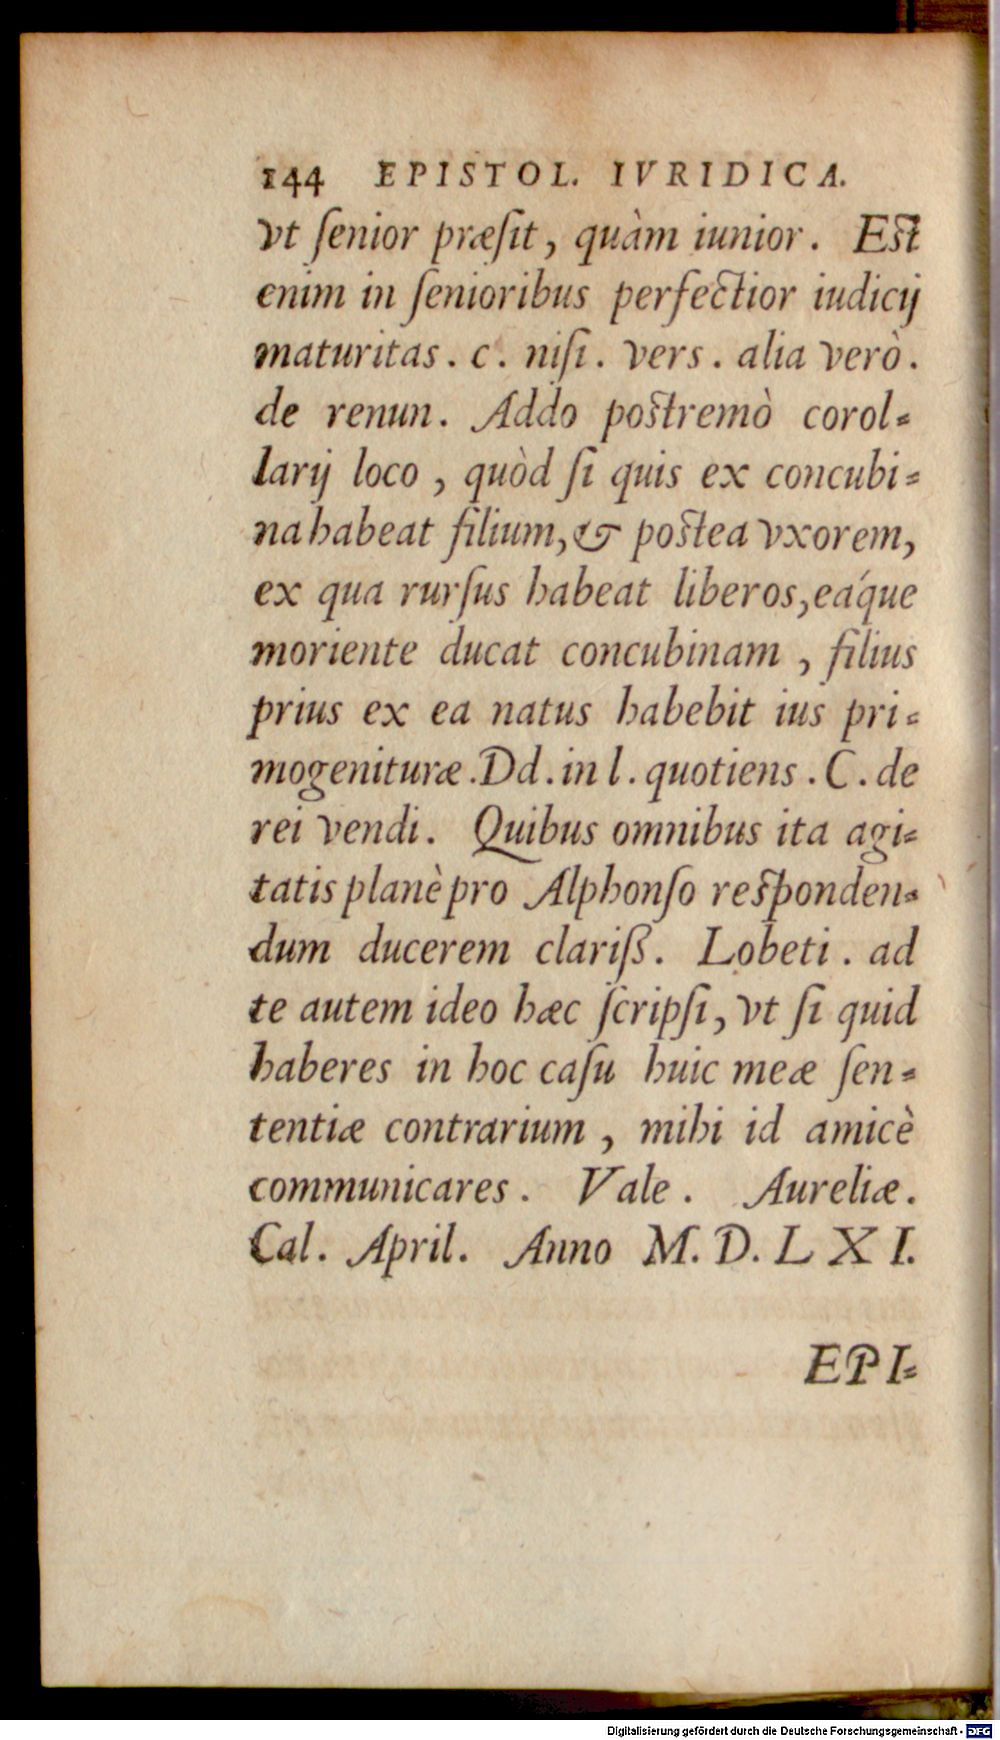 144 EPISTOL. IVRIDICA.
vt ſenior præſit, quàm iunior. Est
enim in ſenioribus perfectior iudicij
maturitas. c. niſi. vers. alia verò.
de renun. Addo postremò corol-
larij loco, quòd ſi quis ex concubi-
na habeat filium, & postea vxorem,
ex qua rurſus habeat liberos, eáque
moriente ducat concubinam, filius
prius ex ea natus habebit ius pri-
mogenituræ. Dd. in l. quotiens. C. de
rei vendi. Quibus omnibus ita agi-
tatis planè pro Alphonſo responden-
dum ducerem clariß. Lobeti. ad
te autem ideo hæc ſcripſi, vt ſi quid
haberes in hoc caſu huic meæ ſen-
tentiæ contrarium, mihi id amicè
communicares. Vale. Aureliæ.
Cal. April. Anno M. D. L X I.
EPI-
Digitalisierung gefördert durch die Deutsche Forschungsgemeinschaft - DFG